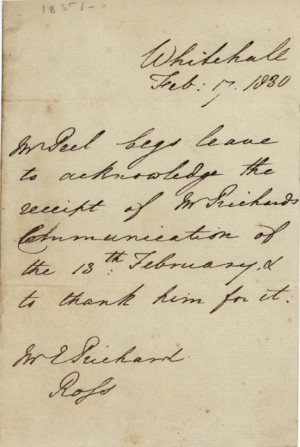 1851/-
Whitehall
Feb: 17. 1830
Mr Peel begs leave
to acknowledge the
receipt of Mr Prichards
Communication of
the 13th: February, &
to thank him for it.
Mr E Prichard
Ross